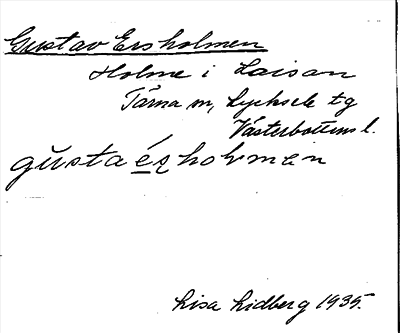 Gustav Ersholmen
Holme i Laisan
Tärna sn, Lycksele tg
Västerbottens l.
gŭsta éʂholmen
Lisa Lidberg 1935.